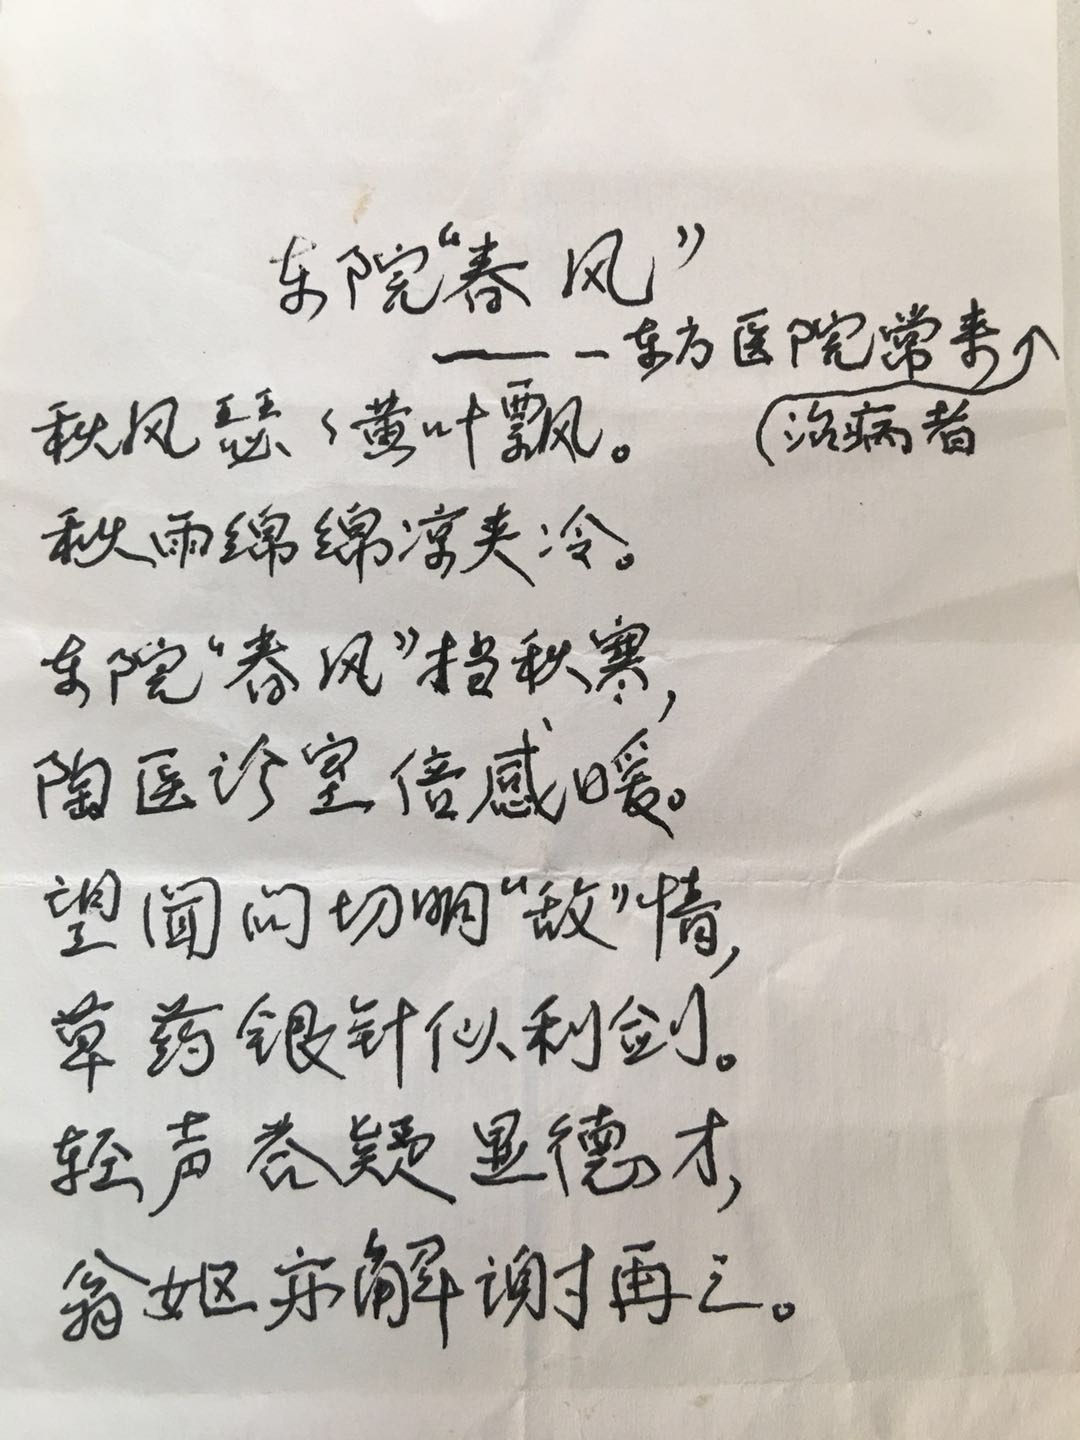 东院“春风”
——一东方医院常来
治病者
秋风瑟々黄叶飘。
秋雨绵绵凉夹冷。
东院“春风”挡秋寒,
陶医诊室倍感暖。
望闻问切明“敌”情,
草药银针似利剑。
轻声答疑显德才,
翁妪亦解谢再三。